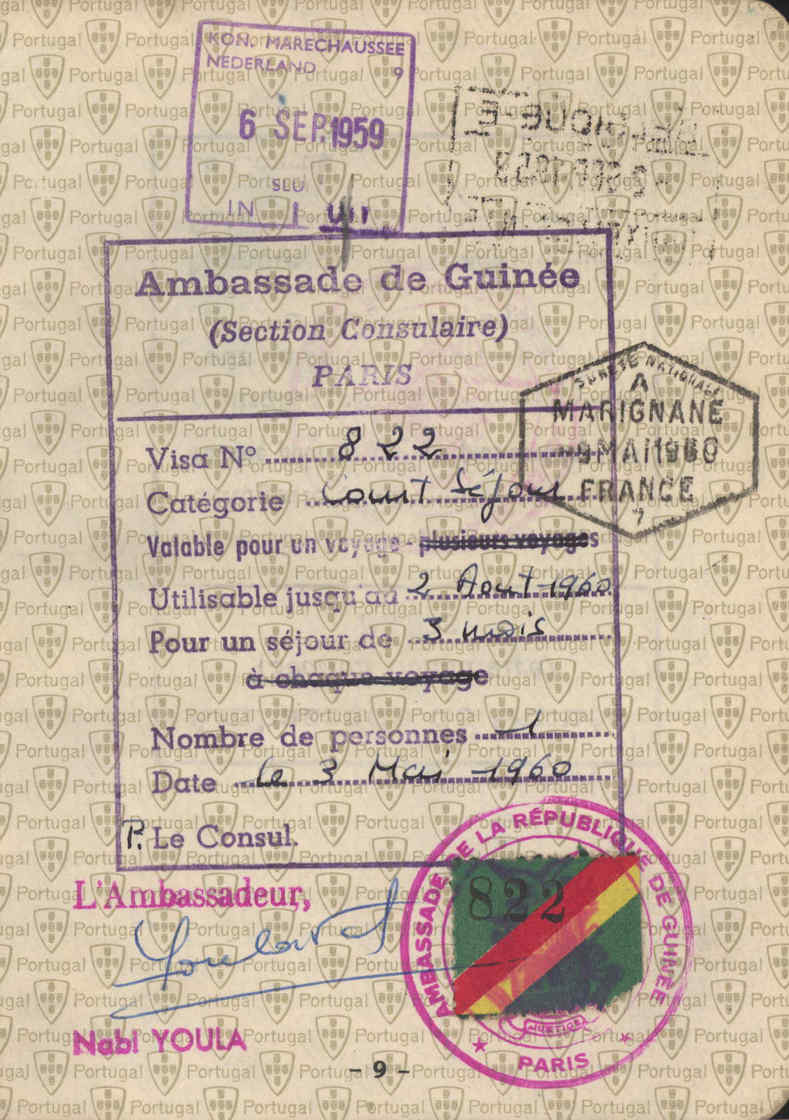 KON. MARECHAUSSEE
NEDERLAND 9
6 SEP. 1959
IN
Ambassade de Guinée
(Section Consulaire)
PARIS
SURETÉ NATIONALE
A
MARIGNANE
9 MAI 1960
FRANCE
7
Visa N° 822
Catégorie Court Séjour
Valable pour un voyage - plusieurs voyages
Utilisable jusqu'au 2 Aout 1960
Pour un séjour de 3 mois
à chaque voyage
Nombre de personnes 1
Date le 3 Mai 1960
P. Le Consul.
L'Ambassadeur,
Nabi YOULA
AMBASSADE DE LA RÉPUBLIQUE DE GUINÉE
822
JUSTICE
PARIS
- 9 -
Portugal